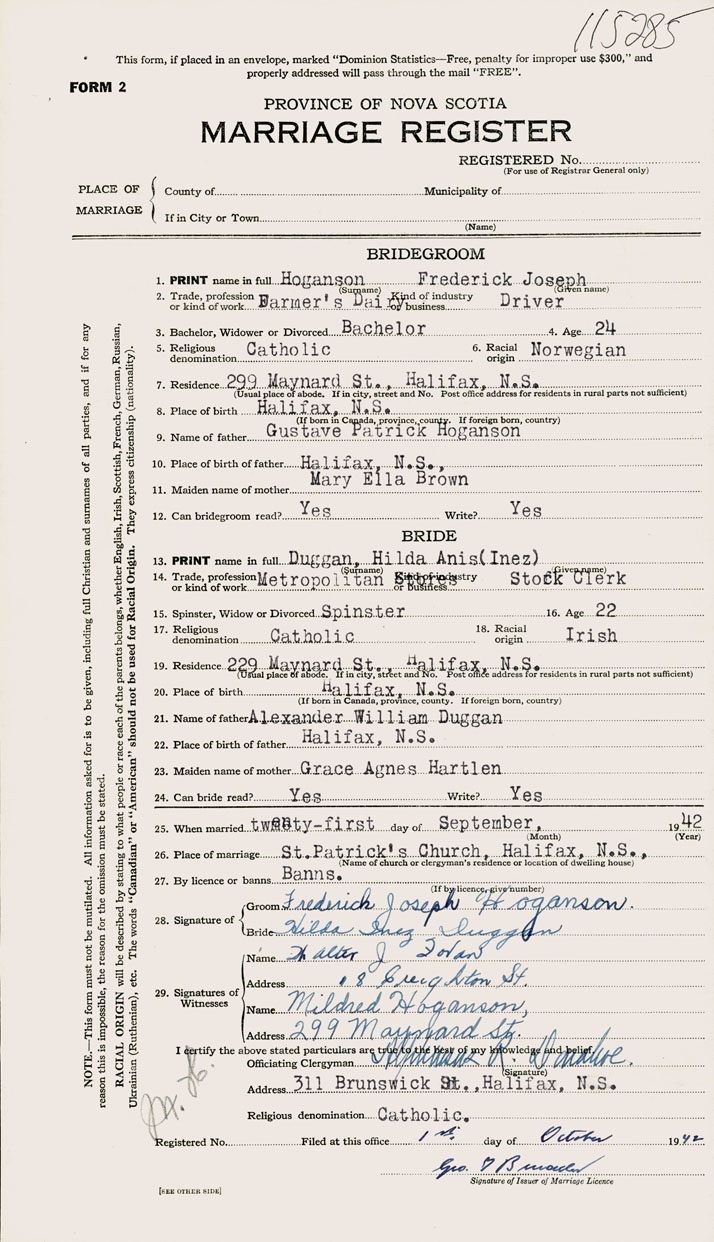 115285
This form, if placed in an envelope, marked “Dominion Statistics—Free, penalty for improper use $300,” and
properly addressed will pass through the mail “FREE”.
FORM 2
PROVINCE OF NOVA SCOTIA
MARRIAGE REGISTER
REGISTERED No.
(For use of Registrar General only)
PLACE OF MARRIAGE
County of Municipality of
If in City or Town
(Name)
BRIDEGROOM
1. PRINT name in full Hoganson Frederick Joseph
(Surname) (Given name)
2. Trade, profession or kind of work Farmer's Dairy Kind of industry or business Driver
3. Bachelor, Widower or Divorced Bachelor 4. Age 24
5. Religious denomination Catholic 6. Racial origin Norwegian
7. Residence 299 Maynard St., Halifax, N.S.
(Usual place of abode. If in city, street and No. Post office address for residents in rural parts not sufficient)
8. Place of birth Halifax, N.S.
(If born in Canada, province, county. If foreign born, country)
9. Name of father Gustave Patrick Hoganson
10. Place of birth of father Halifax, N.S.,
11. Maiden name of mother Mary Ella Brown
12. Can bridegroom read? Yes Write? Yes
BRIDE
13. PRINT name in full Duggan, Hilda Anis(Inez)
(Surname) (Given name)
14. Trade, profession or kind of work Metropolitan Stores Kind of industry or business Stock Clerk
15. Spinster, Widow or Divorced Spinster 16. Age 22
17. Religious denomination Catholic 18. Racial origin Irish
19. Residence 229 Maynard St., Halifax, N.S.
(Usual place of abode. If in city, street and No. Post office address for residents in rural parts not sufficient)
20. Place of birth Halifax, N.S.
(If born in Canada, province, county. If foreign born, country)
21. Name of father Alexander William Duggan
22. Place of birth of father Halifax, N.S.
23. Maiden name of mother Grace Agnes Hartlen
24. Can bride read? Yes Write? Yes
25. When married twenty-first day of September, 1942
(Month) (Year)
26. Place of marriage St.Patrick's Church, Halifax, N.S.,
(Name of church or clergyman's residence or location of dwelling house)
27. By licence or banns Banns.
(If by licence, give number)
28. Signature of
Groom Frederick Joseph Hoganson.
Bride Hilda Inez Duggan
29. Signatures of Witnesses
Name Walter J
Address 8 Creighton St.
Name Mildred Hoganson,
Address 299 Maynard St.
I certify the above stated particulars are true to the best of my knowledge and belief.
Officiating Clergyman
(Signature)
Address 311 Brunswick St.,Halifax, N.S.
Religious denomination Catholic.
Registered No. Filed at this office 1st. day of October 1942
Geo.
Signature of Issuer of Marriage Licence
[SEE OTHER SIDE]
NOTE.—This form must not be mutilated. All information asked for is to be given, including full Christian and surnames of all parties, and if for any
reason this is impossible, the reason for the omission must be stated.
RACIAL ORIGIN will be described by stating to what people or race each of the parents belongs, whether English, Irish, Scottish, French, German, Russian,
Ukrainian (Ruthenian), etc. The words “Canadian” or “American” should not be used for Racial Origin. They express citizenship (nationality).